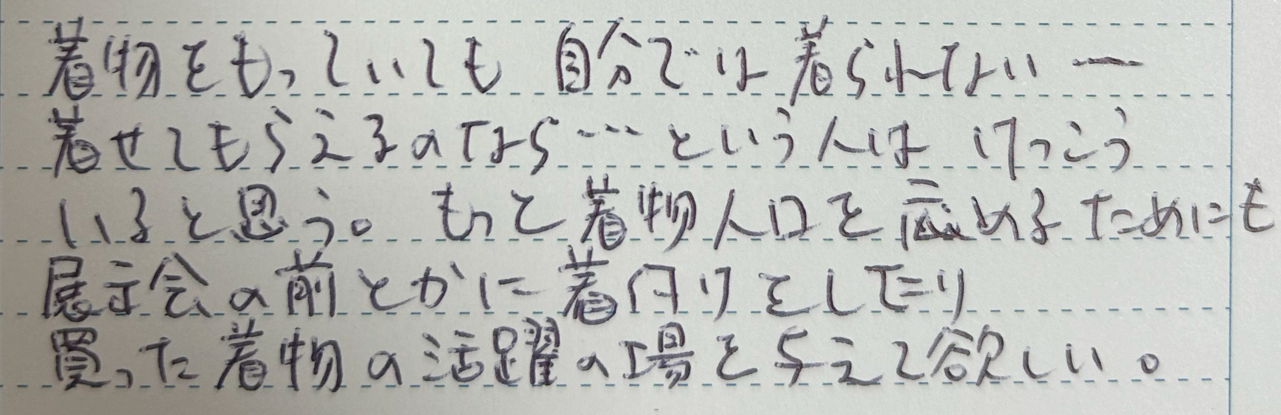 着物をもっていても 自分では着られない ―
着せてもらえるのなら…という人は けっこう
いると思う。もっと着物人口を広めるためにも
展示会の前とかに着付けをしてたり
買った着物の活躍の場を与えて欲しい。